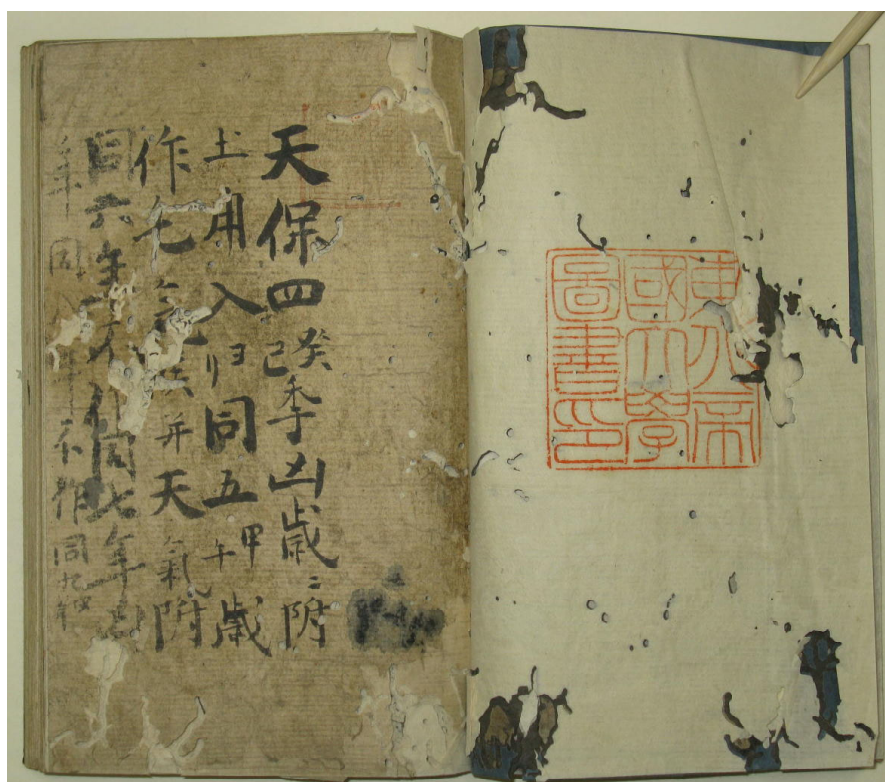 東北帝
國大學
圖書印
天保四癸巳季凶歳ニ附
土用入ヨリ同五甲午歳
作毛并天氣附
同六年不作同七年凶
年同八年不作同九年